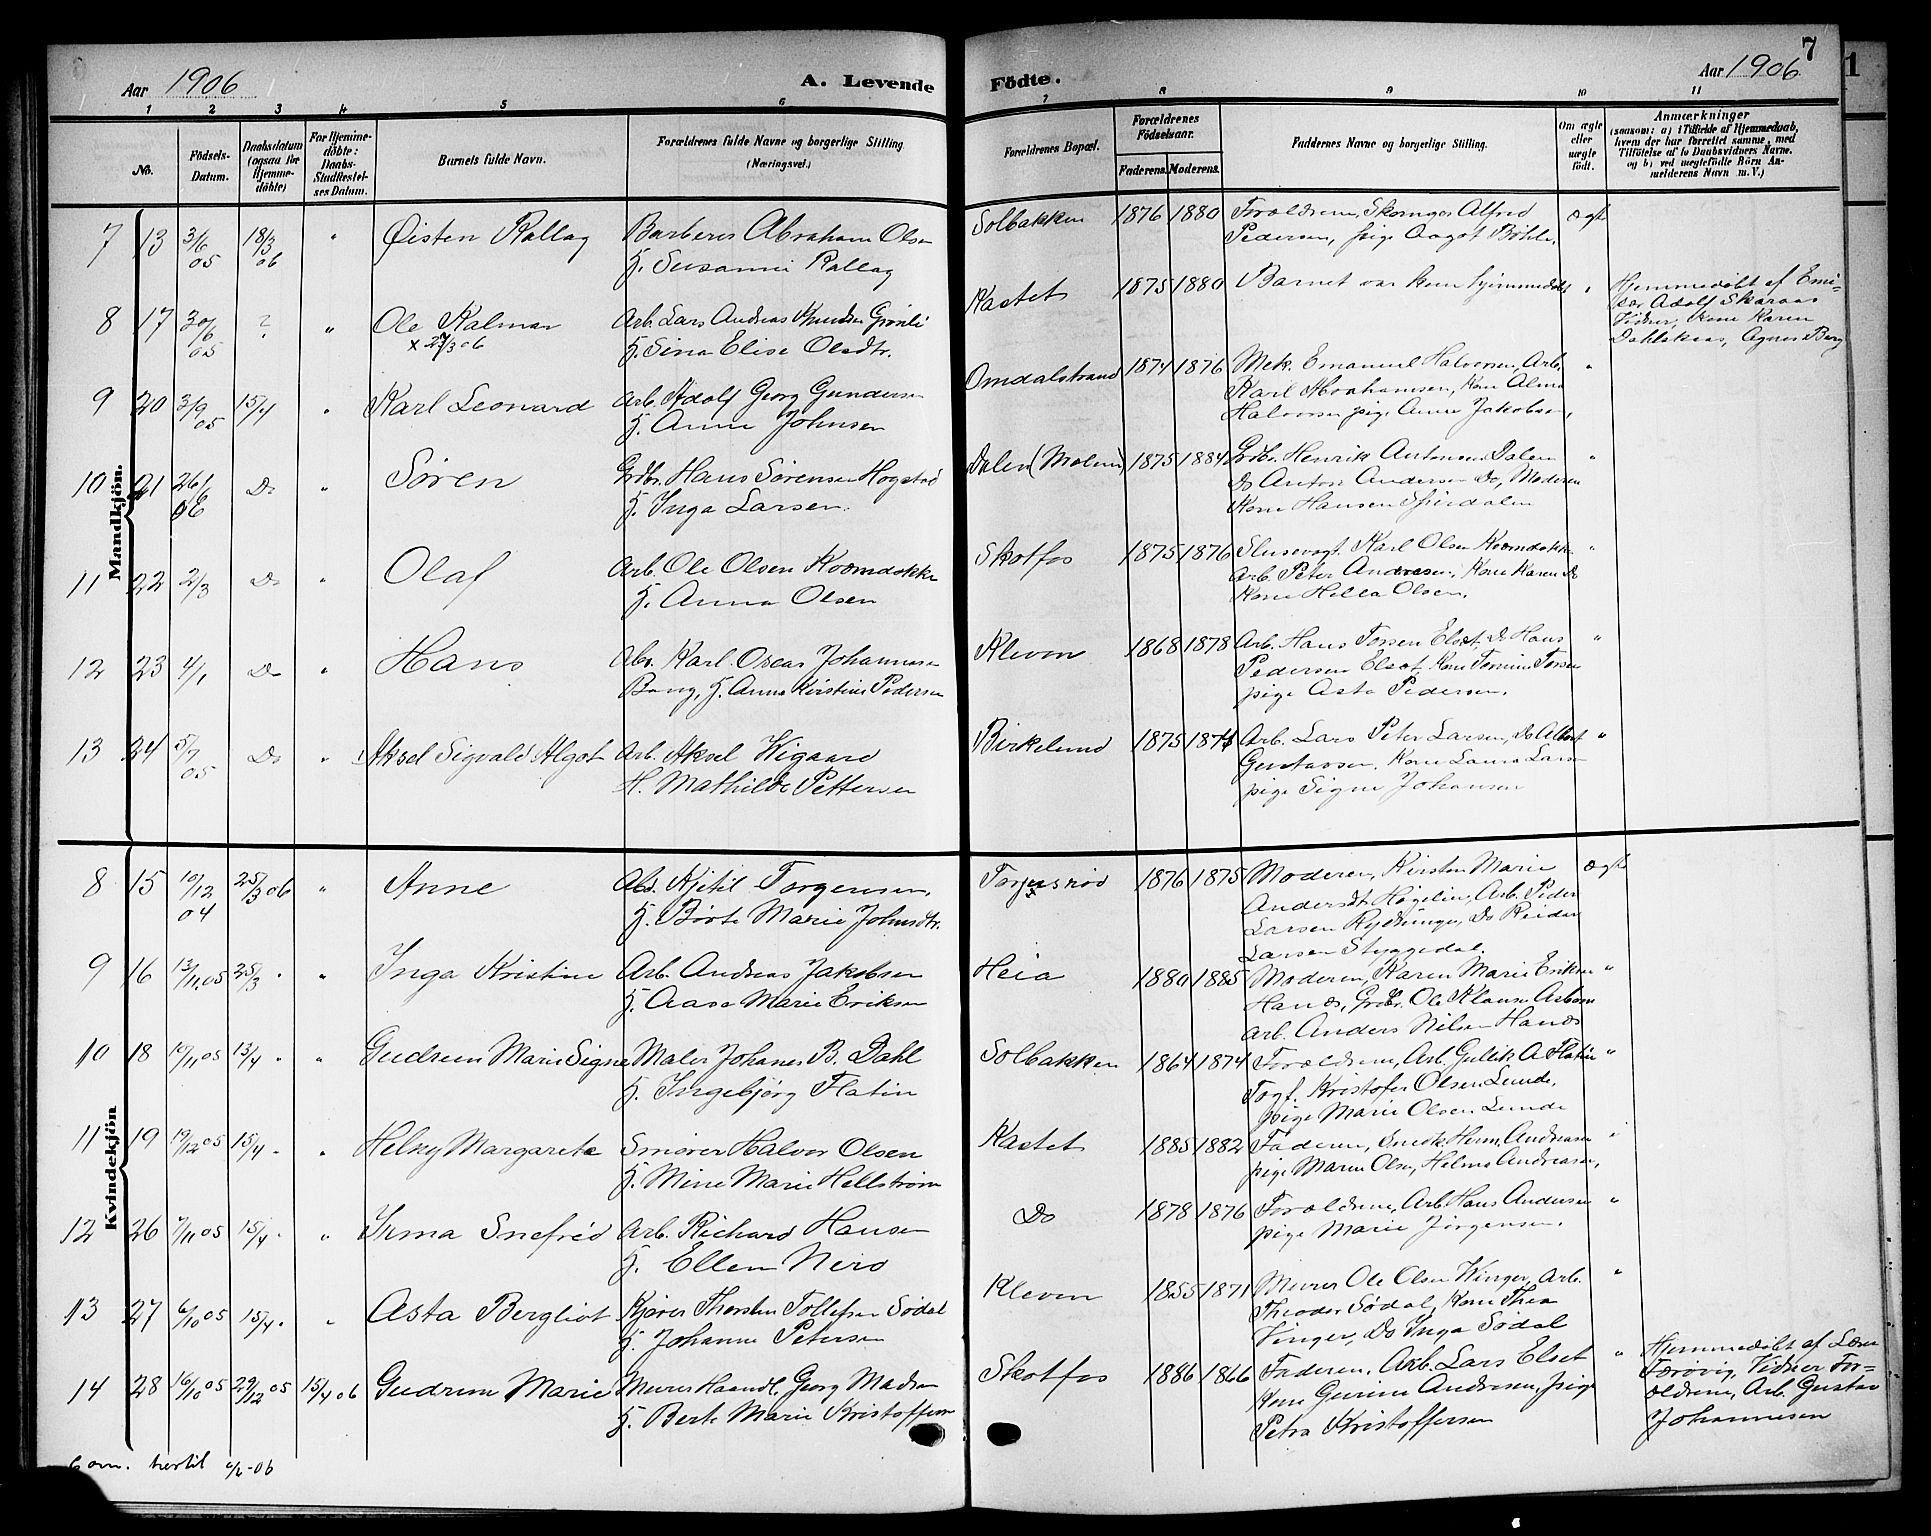 6
Aar 1906
A. Levende
1 2 3 4 5 6
No.
Födsels-Datum.
Daabsdatum (ogsaa for Hjemmedöbte)
For Hjemmedöbte: Daabs-Stadfestelses Datum.
Barnets fulde Navn.
Forældrenes fulde Navne og borgerlige Stilling. (Næringsvei.)
Mandkjön.
7 13 18/3 06 " Øisten Rollag Barberer Abraham Olsen
H. Susanne Rollag
8 17 30/6 05 ? " Ole Kalman Arb. Lars Andreas Knudsen Grønli
H. Sina Elise Olsdtr.
9 20 3/9 05 15/4 " Karl Leonard Arb. Adolf Georg Gundersen
H. Anne Johnsen
10 21 26/1 06 Do " Søren Grdbr. Hans Sørensen Hogstad
H. Inga Larsen.
11 22 2/3 Do " Olaf Arb. Ole Olsen
H. Anna Olsen
12 23 4/1 Do " Hans Arb. Karl Oscar Johannesen
Bang, H. Anna Kirstine Pedersen
13 24 5/7 05 Do " Aksel Sigvald Algot Arb. Aksel Wigaard
H. Mathilde Pettersen
Kvindekjön
8 15 10/12 04 25/3 06 " Anne Arb. Kjetil Torgersen,
H. Børte Marie Johnsdtr.
9 16 13/11 05 25/3 " " Inga Kristine Arb. Andreas Jakobsen
H. Aasa Marie Eriksen
10 18 05 13/4 " " Gudrun Marie Signe Maler Johanes B. Dahl
H. Ingebjørg Flatin
11 19 19/12 05 15/4 " " Helny Margarete Smører Halvor Olsen
H. Mine Marie Hellstrøm
12 26 7/11 05 15/4 " " Irma Snefrid Arb. Richard Hansen
H. Ellen
13 27 6/10 05 15/4 " " Asta Bergliot Kjører Thorsten Tollefsen Sødal
H. Johanne Petersen
14 28 16/10 05 29/12 05 15/4 06 Gudrun Marie Murer Georg Madsen
H. Berte Marie Kristoffersen
hertil
Födte.
7
Aar 1906
1
7 8 9 10 11
Forældrenes Bopæl.
Forældrenes Födselsaar.
Faderens. Moderens.
Faddernes Navne og borgerlige Stilling.
Om ægte eller uægte födt.
Anmærkninger
(saasom: a) i Tilfælde af Hjemmedaab,
hvem der har forrettet samme, med
Tilföielse af to Daabsvidners Navne.
og b) ved uægtefödte Börn Anmelderens
Navn m. V.)
Solbakken 1876 1880 Forældrene, Skomager Alfred ægte
Pedersen, pige Aagot Bøhler
Kastet 1875 1880 Barnet var kun hjemmedøbt " Hjemmedøbt af
Adolf Skaraas
Vidner, kone Karen
Dahlskaas, Agnes Berg
Omdalstrand 1874 1876 Mek. Emanuel Halvorsen, Arb. "
Karl Abrahamsen, Kone Alma
Halvorsen pige Anna Jakobsen,
Dalen (Molund) 1875 1884 Grdbr. Henrik Antonsen Dalen "
Do Anton Andersen Do, Moderen
Kone Hansen
Skotfos 1875 1876 Slusevogt Karl Olsen "
Arb. Peter Andresen, Kone Karen Do
Kone Hella Olsen.
Kleven 1868 1878 Arb. Hans Torsen Elset, Do Hans "
Pedersen Elset, Kone Tomine Torsen
pige Asta Pedersen.
Birkelund 1875 1874 Arb. Lars Peter Larsen, Do Albert "
Gustavsen. Kone Laura Larsen
pige Signe Johansen
Torjusrød 1876 1875 Moderen, Kirsten Marie ægte
Andersdt. Høgelien, Arb. Peder
Larsen Rydninge, Do Reidar
Larsen Styggedal.
Heia 1880 1885 Moderen, Karen Marie Eriksen "
Hanås, Grdbr. Ole Klausen
Arb. Anders Nilsen Hanås
Solbakken 1864 1874 Forældrene, Arb. Gulik A. Flatin "
Togf. Kristofer Olsen Lunde,
pige Marie Olsen Lunde
Kastet 1885 1882 Faderen, Snedk. Herm. Andreasen "
pige Maren Olsen, Helma Andreasen,
Do 1878 1876 Forældrene, Arb. Hans Andersen "
pige Marie Jørgensen.
Kleven 1855 1871 Murer Ole Olsen Winger, Arb. "
Theodor Sødal, Kone Thea
Vinger, Do Inga Sødal
Skotfos 1886 1866 Faderen, Arb. Lars Elset " Hjemmedøbt af Lærer
Kone Gurine Andresen, pige Førøvig, Vidner For-
Petra Kristoffersen ældrene, Arb. Gustav
Johannesen